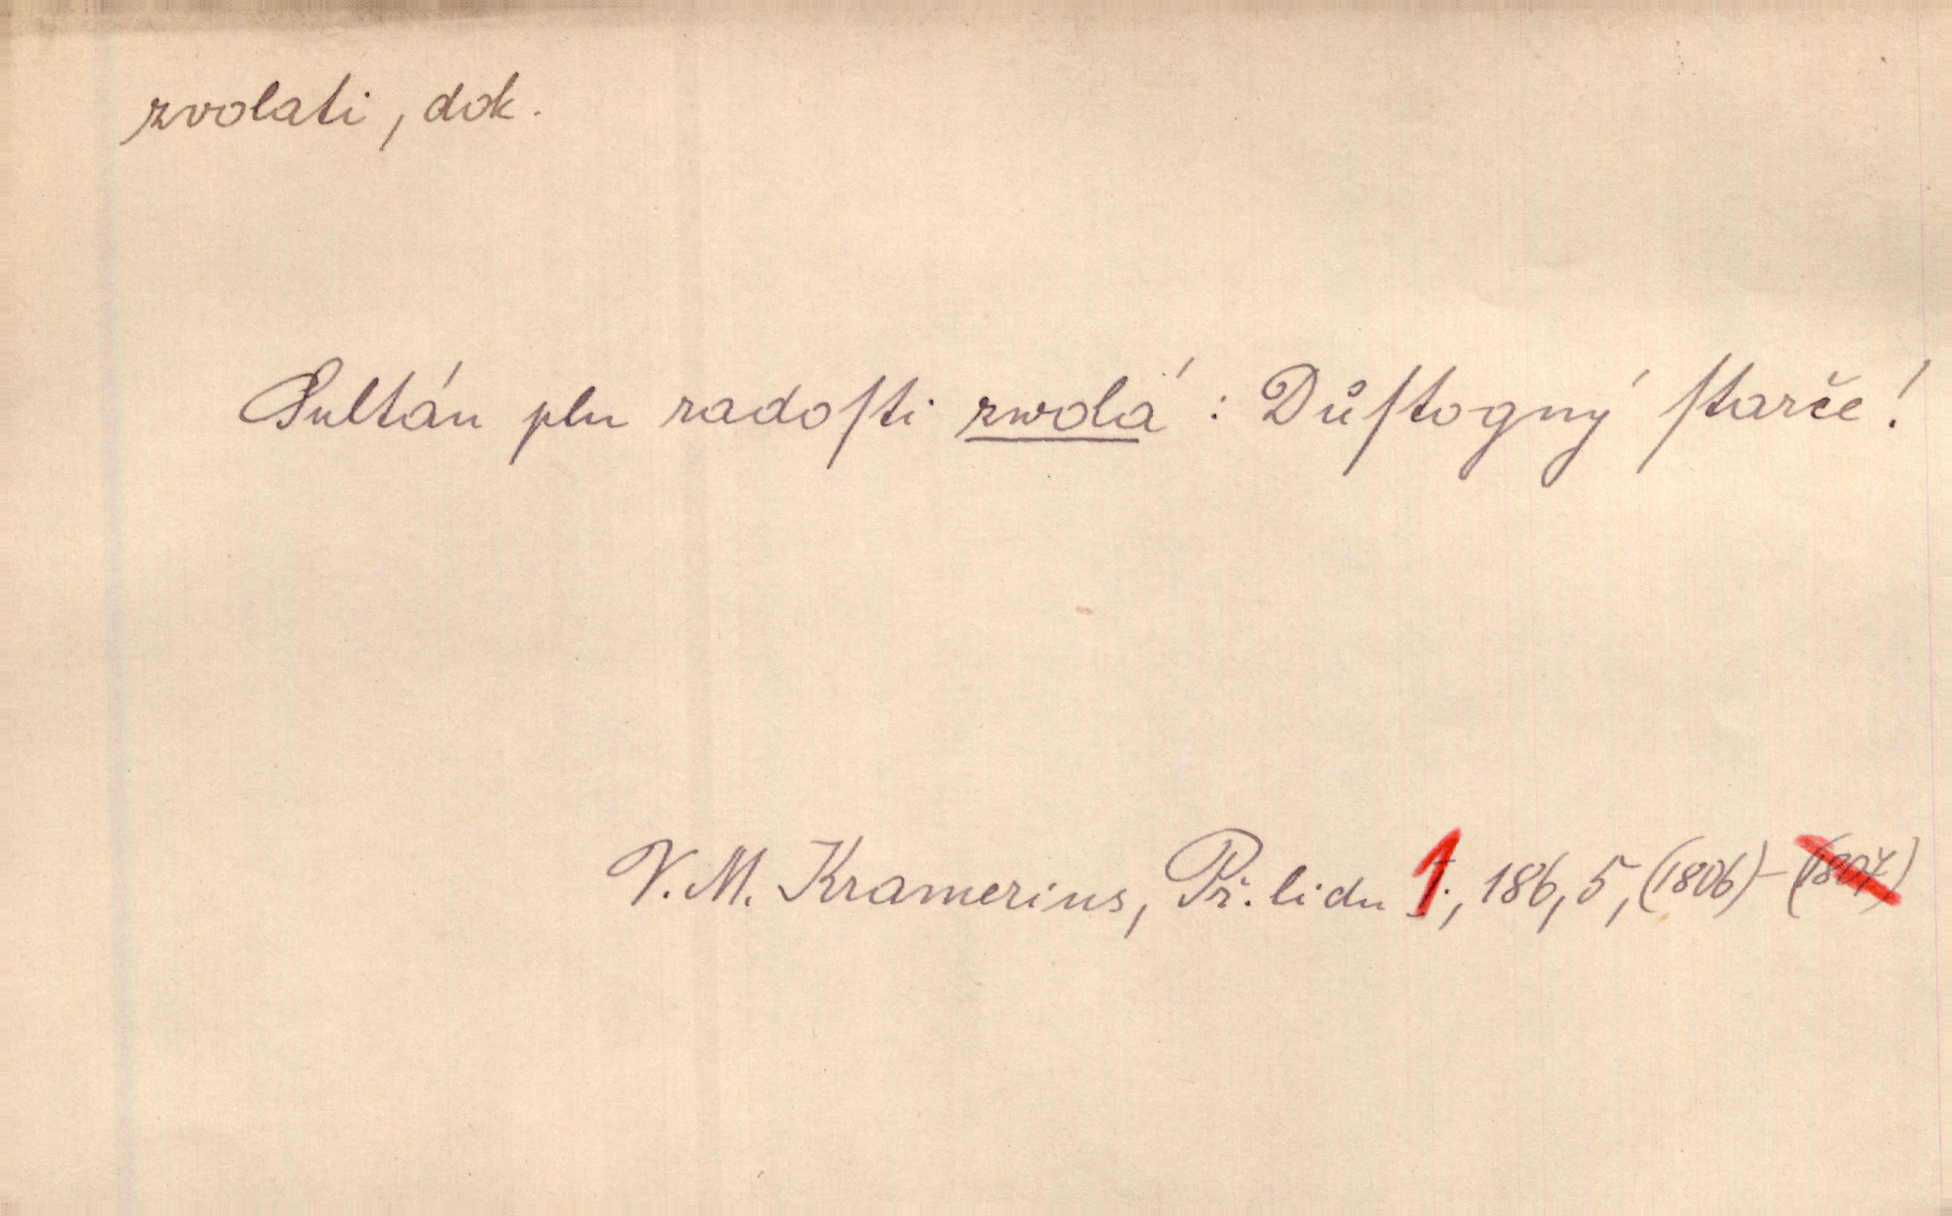 zvolati, dok.
Sultán pln radoſti zwolá: Důſtogný ſtarče!
V. M. Kramerius, Př. lidu 1., 186, 5, (1806) - (1807)